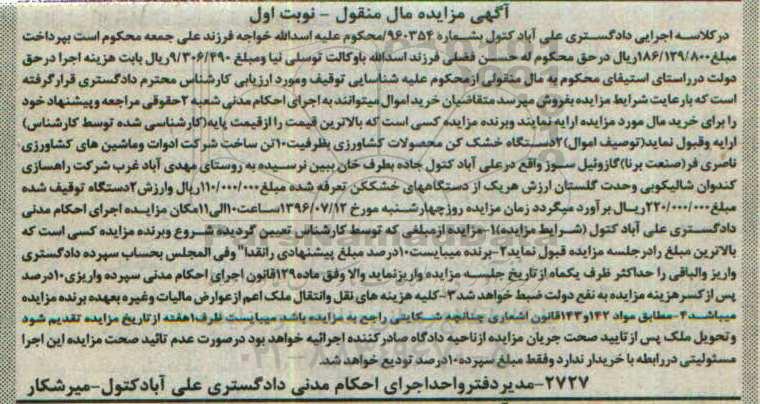 آگهی مزایده مال منقول - نوبت اول
درکلاسه اجرایی دادگستری علی آباد کتول بشماره ۹۶۰۳۵۴/محکوم علیه اسدالله خواجه فرزند علی جمعه محکوم است بپرداخت
مبلغ۱۸۶/۱۲۹/۸۰۰ریال درحق محکوم له حسن فضلی فرزند اسدالله باوکالت توسلی نیا ومبلغ ۹/۳۰۶/۴۹۰ریال بابت هزینه اجرا درحق
دولت درراستای استیفای محکوم به مال منقولی ازمحکوم علیه شناسایی توقیف ومورد ارزیابی کارشناس محترم دادگستری قرارگرفته
است که بارعایت شرایط مزایده بفروش میرسد متقاضیان خرید اموال میتوانند به اجرای احکام مدنی شعبه ۲حقوقی مراجعه وپیشنهاد خود
را برای خرید مال مورد مزایده ارایه نمایند وبرنده مزایده کسی است که بالاترین قیمت را ازقیمت پایه(کارشناسی شده توسط کارشناس)
ارایه وقبول نماید(توصیف اموال)۲دستگاه خشک کن محصولات کشاورزی بظرفیت۱۰تن ساخت شرکت ادوات وماشین های کشاورزی
ناصری فر(صنعت برنا)گازوئیل سوز واقع درعلی آباد کتول جاده بطرف خان ببین نرسیده به روستای مهدی آباد غرب شرکت راهسازی
کندوان شالیکوبی وحدت گلستان ارزش هریک از دستگاههای خشککن تعرفه شده مبلغ۱۱۰/۰۰۰/۰۰۰ریال وارزش۲دستگاه توقیف شده
مبلغ۲۲۰/۰۰۰/۰۰۰ریال برآورد میگردد زمان مزایده روزچهارشنبه مورخ ۱۳۹۶/۰۷/۱۲ساعت۱۰الی۱۱مکان مزایده اجرای احکام مدنی
دادگستری علی آباد کتول (شرایط مزایده)۱-مزایده ازمبلغی که توسط کارشناس تعیین گردیده شروع وبرنده مزایده کسی است که
بالاترین مبلغ رادرجلسه مزایده قبول نماید۲-برنده میبایست۱۰درصد مبلغ پیشنهادی رانقدا" وفی المجلس بحساب سپرده دادگستری
واریز والباقی را حداکثر ظرف یکماه ازتاریخ جلسه مزایده واریزنماید والا وفق ماده۱۲۹قانون اجرای احکام مدنی سپرده واریزی۱۰درصد
پس ازکسرهزینه مزایده به نفع دولت ضبط خواهد شد۳-کلیه هزینه های نقل وانتقال ملک اعم ازعوارض مالیات وغیره بعهده برنده مزایده
میباشد۴-مطابق مواد ۱۴۲و۱۴۳قانون اشعاری چنانچه شکایتی راجع به مزایده باشد میبایست ظرف۱هفته ازتاریخ مزایده تقدیم شود
وتحویل ملک پس ازتایید صحت جریان مزایده ازناحیه دادگاه صادرکننده اجرائیه خواهد بود درصورت عدم تائید صحت مزایده این اجرا
مسئولیتی دررابطه با خریدار ندارد وفقط مبلغ سپرده۱۰درصد تودیع خواهد شد.
۲۷۲۷-مدیردفترواحداجرای احکام مدنی دادگستری علی آبادکتول-میرشکار